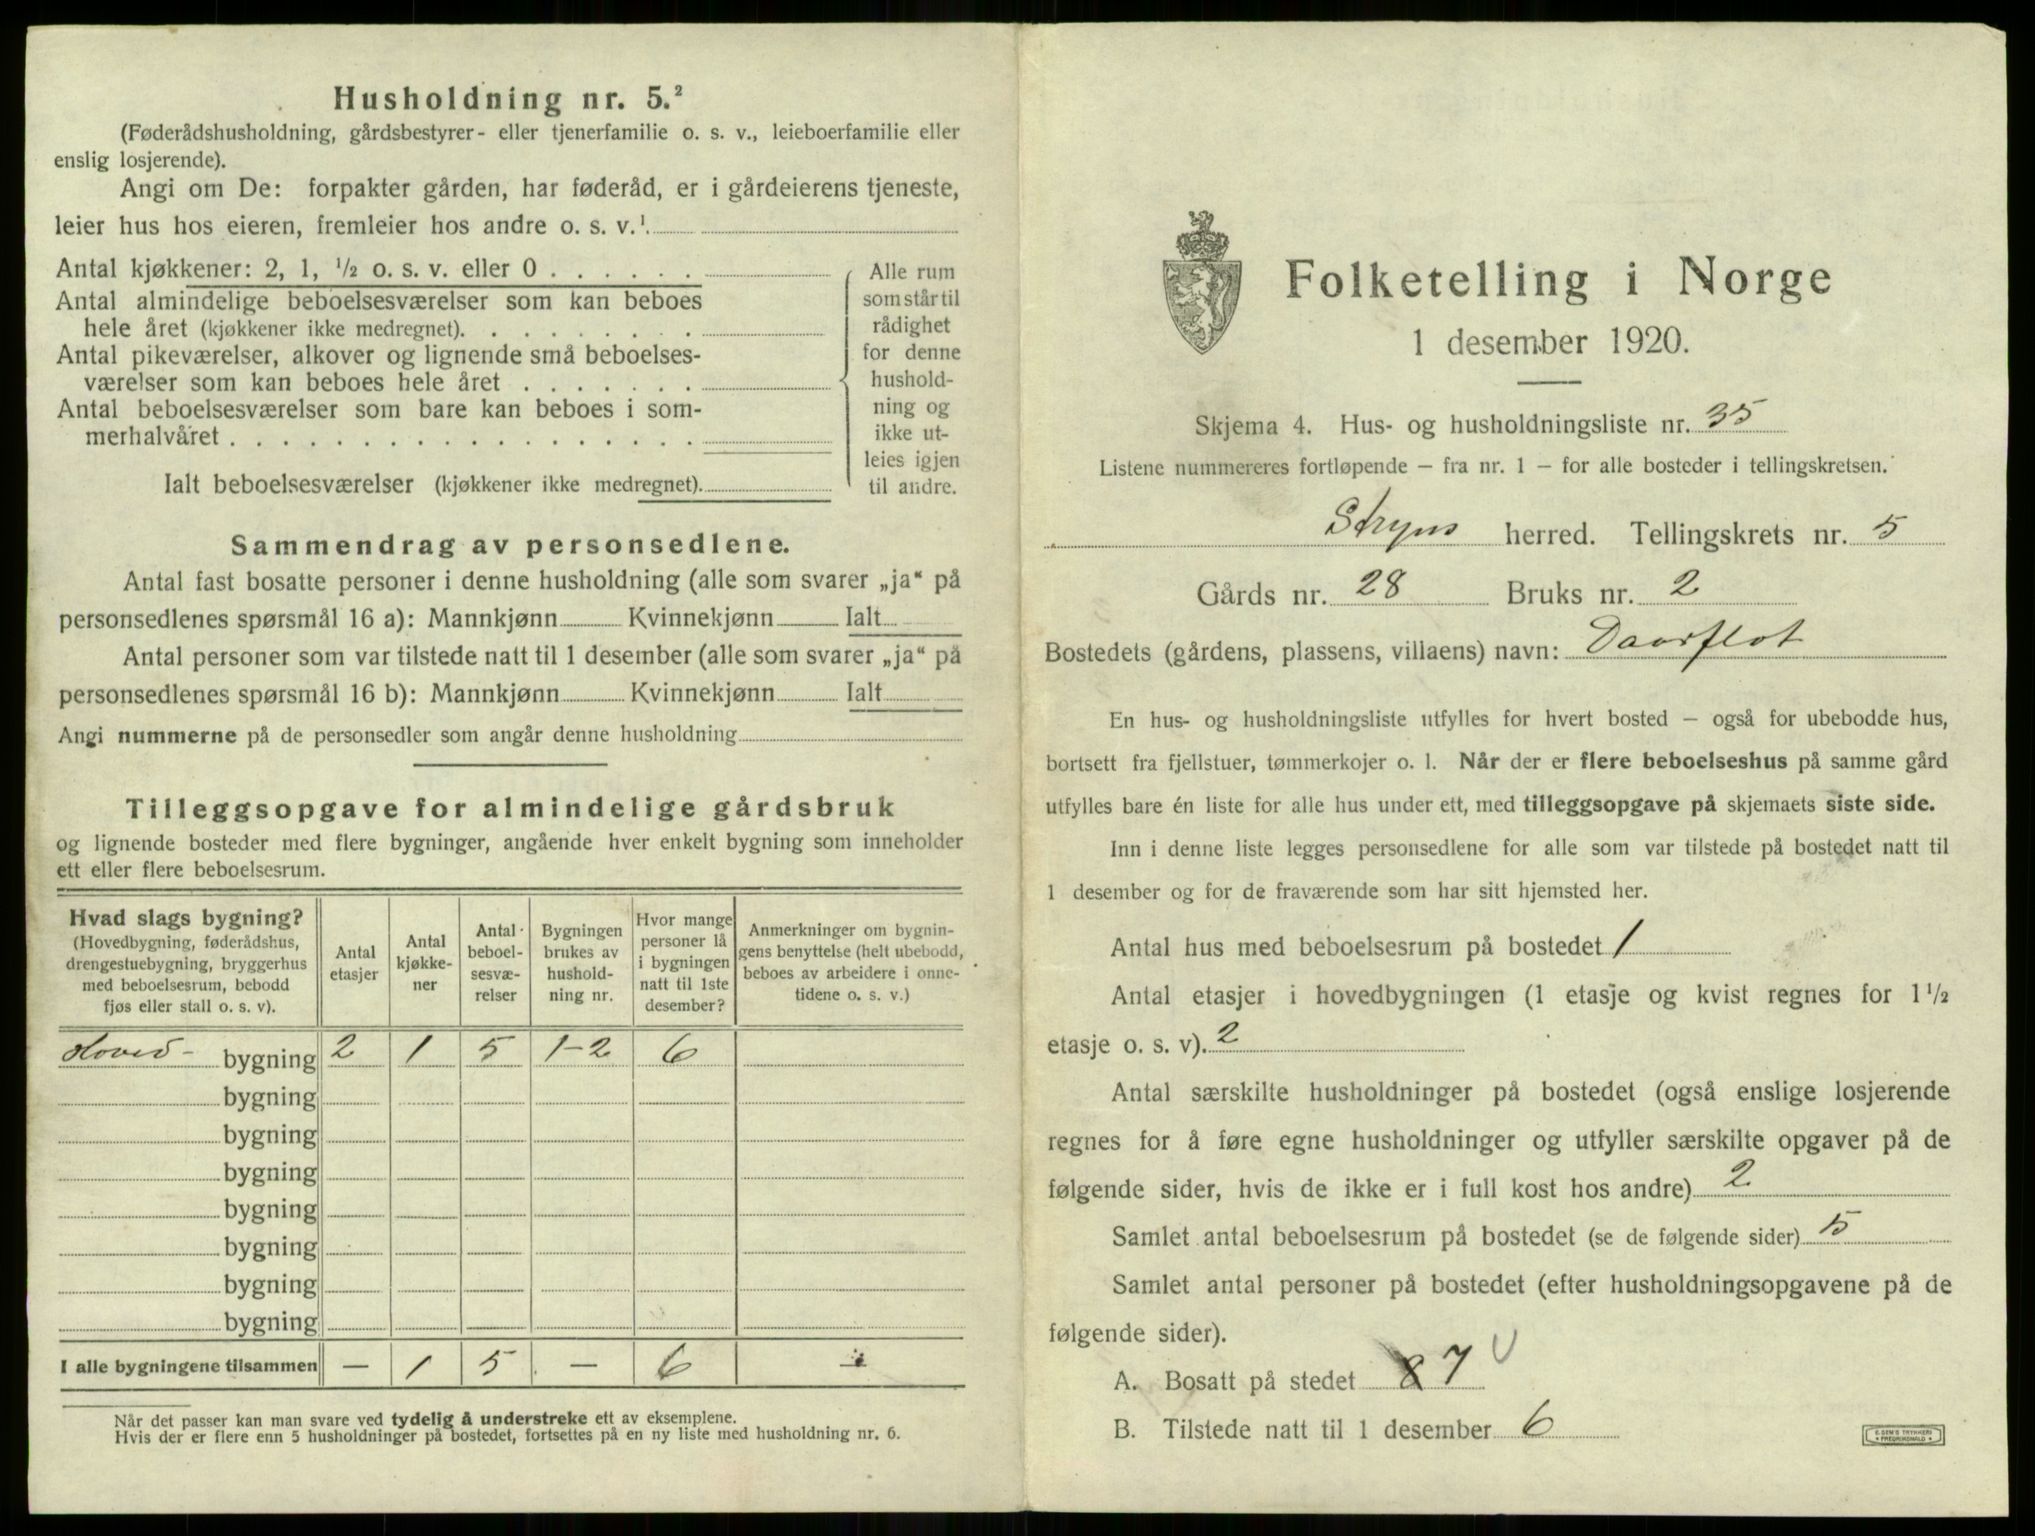 Husholdning nr. 5.²
(Føderådshusholdning, gårdsbestyrer- eller tjenerfamilie o. s. v., leieboerfamilie eller
enslig losjerende).
Angi om De: forpakter gården, har føderåd, er i gårdeierens tjeneste,
leier hus hos eieren, fremleier hos andre o. s. v.¹
Antal kjøkkener: 2, 1, ½ o. s. v. eller 0 . . . . . .
Antal almindelige beboelsesværelser som kan beboes
hele året (kjøkkener ikke medregnet). . . . . . . . .
Antal pikeværelser, alkover og lignende små beboelses-
værelser som kan beboes hele året . . . . . . .
Antal beboelsesværelser som bare kan beboes i som-
merhalvåret . . . . . . . . . . . . . . . . . .
Ialt beboelsesværelser (kjøkkener ikke medregnet).
Alle rum
som står til
rådighet
for denne
hushold-
ning og
ikke ut-
leies igjen
til andre.
Sammendrag av personsedlene.
Antal fast bosatte personer i denne husholdning (alle som svarer „ja“ på
personsedlenes spørsmål 16 a): Mannkjønn Kvinnekjønn Ialt
Antal personer som var tilstede natt til 1 desember (alle som svarer „ja“ på
personsedlenes spørsmål 16 b): Mannkjønn Kvinnekjønn Ialt
Angi nummerne på de personsedler som angår denne husholdning
Tilleggsopgave for almindelige gårdsbruk
og lignende bosteder med flere bygninger, angående hver enkelt bygning som inneholder
ett eller flere beboelsesrum.
Hvad slags bygning?
(Hovedbygning, føderådshus,
drengestuebygning, bryggerhus
med beboelsesrum, bebodd
fjøs eller stall o. s. v).
Antal
etasjer
Antal
kjøkke-
ner
Antal
beboel-
sesvæ-
relser
Bygningen
brukes av
hushold-
ning nr.
Hvor mange
personer lå
i bygningen
natt til 1ste
desember?
Anmerkninger om bygnin-
gens benyttelse (helt ubebodd,
beboes av arbeidere i onne-
tidene o. s. v.)
Hoved- bygning 2 1 5 1-2 6
bygning
bygning
bygning
bygning
bygning
bygning
bygning
I alle bygningene tilsammen — 1 5 — 6 —
Når det passer kan man svare ved tydelig å understreke ett av eksemplene.
Hvis der er flere enn 5 husholdninger på bostedet, fortsettes på en ny liste med husholdning nr. 6.
Folketelling i Norge
1 desember 1920.
Skjema 4. Hus- og husholdningsliste nr. 35
Listene nummereres fortløpende – fra nr. 1 – for alle bosteder i tellingskretsen.
Stryns herred. Tellingskrets nr. 5
Gårds nr. 28 Bruks nr. 2
Bostedets (gårdens, plassens, villaens) navn: Daarflot
En hus- og husholdningsliste utfylles for hvert bosted – også for ubebodde hus,
bortsett fra fjellstuer, tømmerkojer o. l. Når der er flere beboelseshus på samme gård
utfylles bare én liste for alle hus under ett, med tilleggsopgave på skjemaets siste side.
Inn i denne liste legges personsedlene for alle som var tilstede på bostedet natt til
1 desember og for de fraværende som har sitt hjemsted her.
Antal hus med beboelsesrum på bostedet 1
Antal etasjer i hovedbygningen (1 etasje og kvist regnes for 1½
etasje o. s. v). 2
Antal særskilte husholdninger på bostedet (også enslige losjerende
regnes for å føre egne husholdninger og utfyller særskilte opgaver på de
følgende sider, hvis de ikke er i full kost hos andre) 2
Samlet antal beboelsesrum på bostedet (se de følgende sider) 5
Samlet antal personer på bostedet (efter husholdningsopgavene på de
følgende sider).
A. Bosatt på stedet 8 7
B. Tilstede natt til 1 desember 6